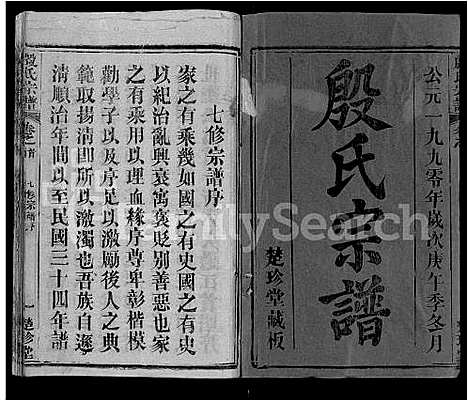 公元一九九〇年歲次庚午季冬月
殷氏宗譜
楚珍堂藏板
七修宗譜序
家之有乘幾如國之有史國之有史
以紀治亂興衰寓褒貶別善惡也家
之有乘用以理血緣序尊卑彰楷模
勸學子以及序足以激勵後人之典
範取揚清即所以激濁也吾族自遜
清順治年間以至民國三十四年譜
殷氏宗譜
卷之首
七修宗譜序
一
楚珍堂
FamilySearch